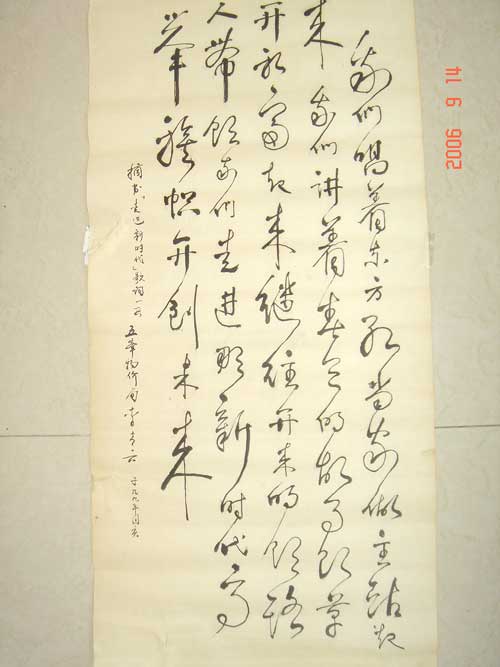 我们唱着东方红当家做主站起
来我们讲着春天的故事改革
开放富起来继往开来的领路
人带领我们走进那新时代高
举旗帜开创未来
走进新时代歌词一 五峰物价局李吉六 于九九年国庆
2006 6 14